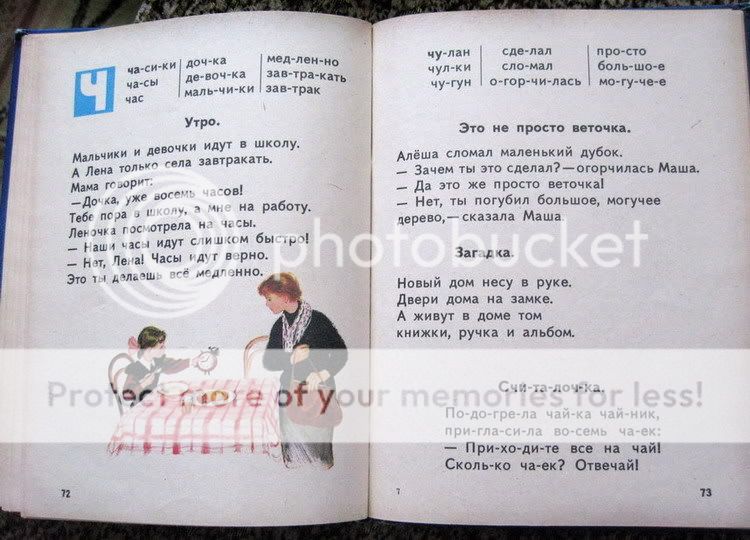 Ч
ча-си-ки доч-ка мед-лен-но
ча-сы де-воч-ка зав-тра-кать
час маль-чи-ки зав-трак
Утро.
Мальчики и девочки идут в школу.
А Лена только села завтракать.
Мама говорит:
—Дочка, уже восемь часов!
Тебе пора в школу, а мне на работу.
Леночка посмотрела на часы.
— Наши часы идут слишком быстро!
— Нет, Лена! Часы идут верно.
Это ты делаешь всё медленно.
72
чу-лан сде-лал про-сто
чул-ки сло-мал боль-шо-е
чу-гун о-гор-чи-лась мо-гу-че-е
Это не просто веточка.
Алёша сломал маленький дубок.
— Зачем ты это сделал?—огорчилась Маша.
— Да это же просто веточка!
— Нет, ты погубил большое, могучее
дерево,—сказала Маша.
Загадка.
Новый дом несу в руке.
Двери дома на замке.
А живут в доме том
книжки, ручка и альбом.
Счи-та-лоч-ка.
По-до-гре-ла чай-ка чай-ник,
при-гла-си-ла во-семь ча-ек:
— При-хо-ди-те все на чай!
Сколь-ко ча-ек? Отвечай!
7
73
photobucket
Protect more of your memories for less!